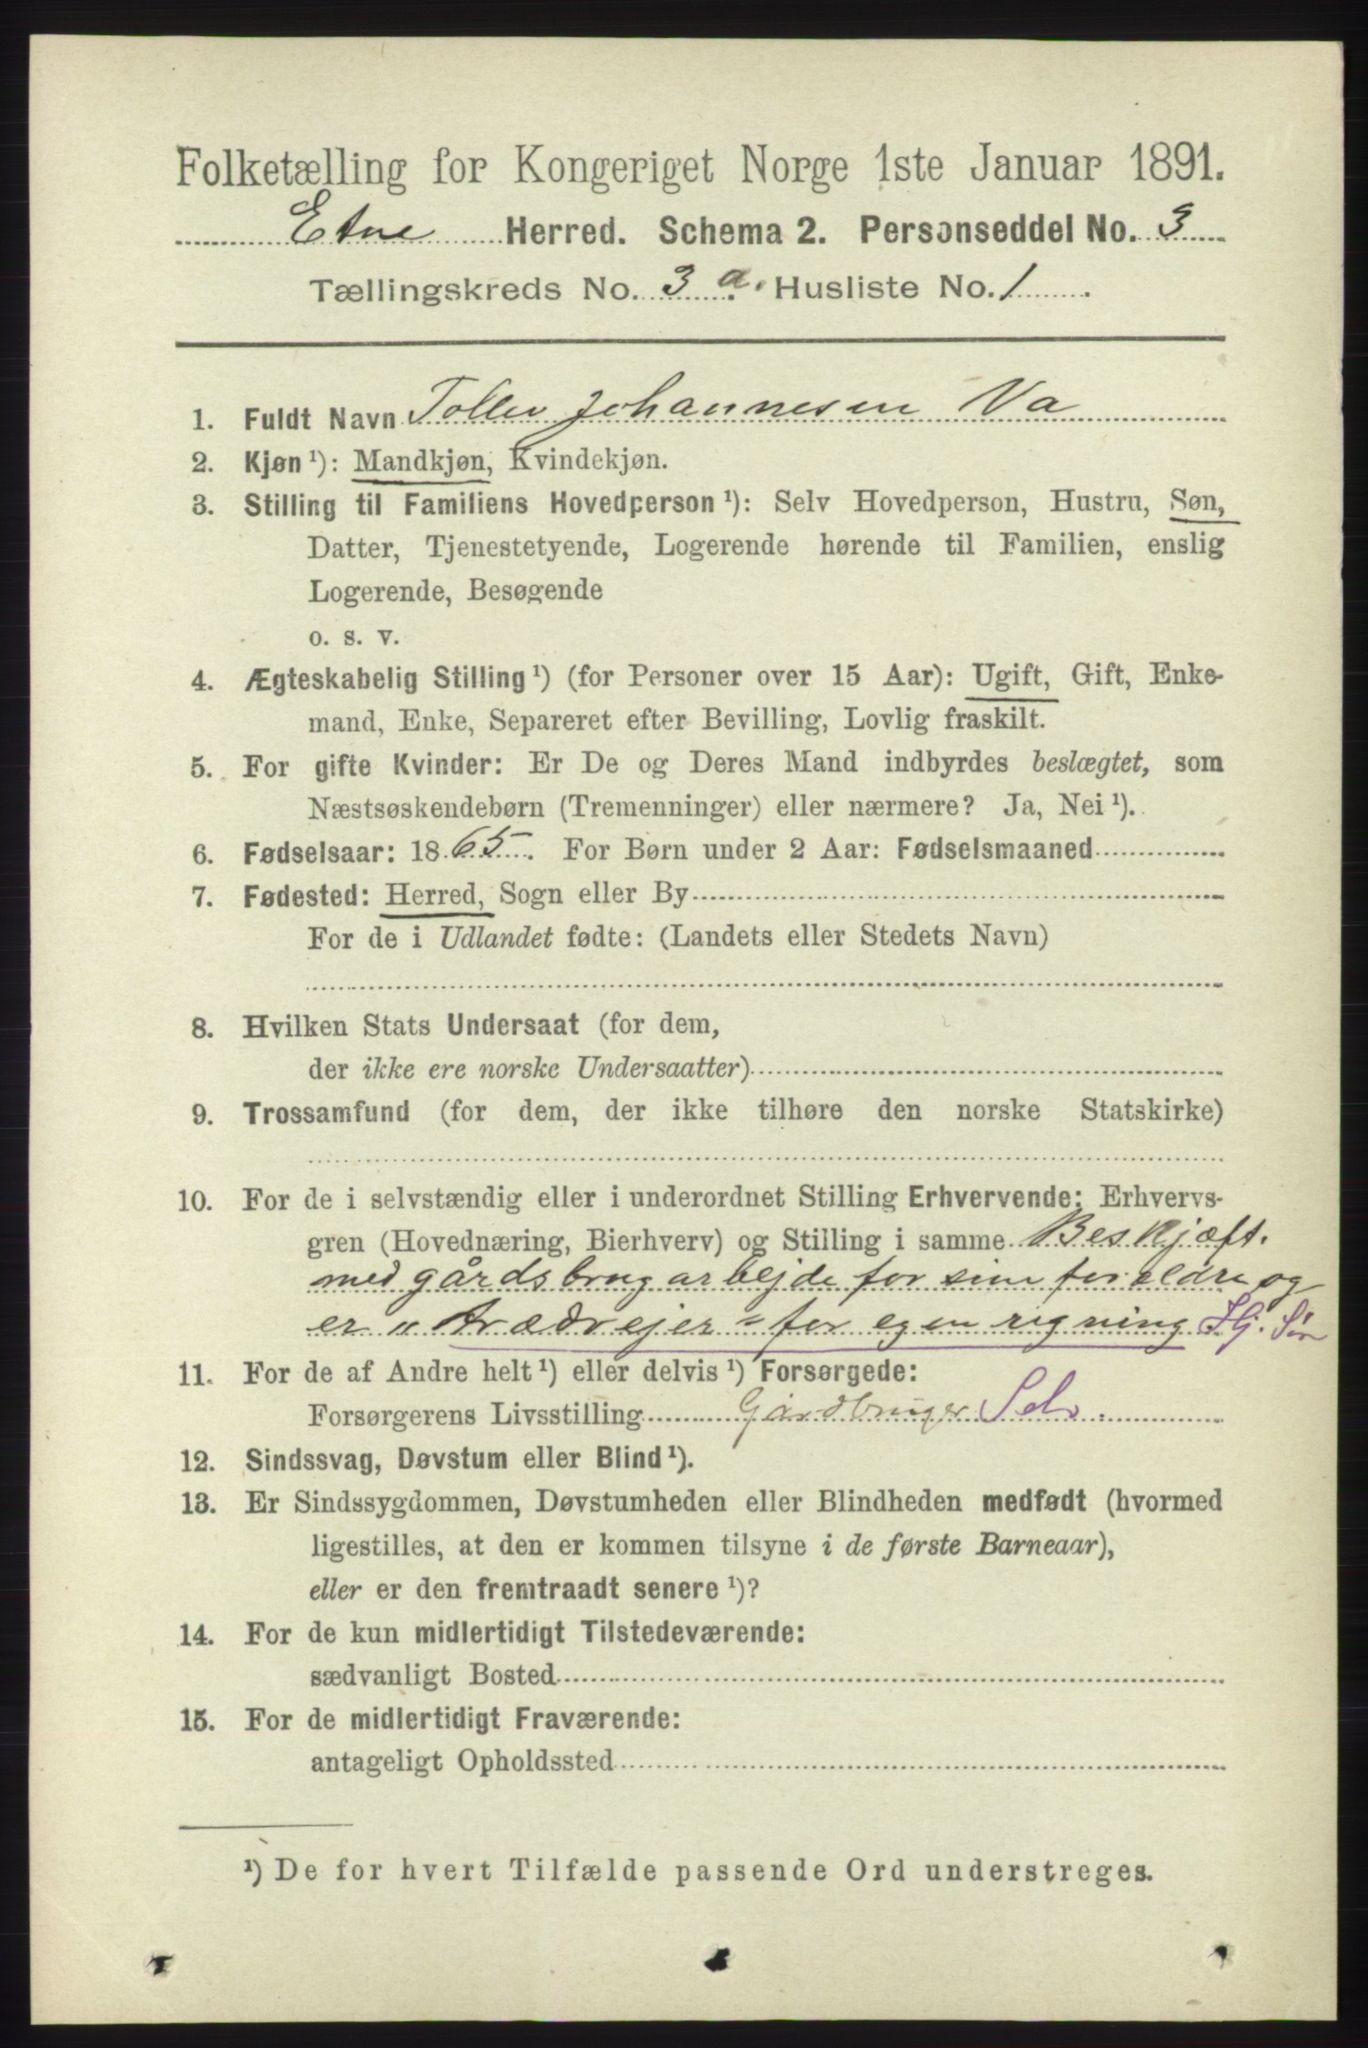 Folketælling for Kongeriget Norge 1ste Januar 1891.
Etne Herred. Schema 2. Personseddel No. 3
Tællingskreds No. 3 a. Husliste No. 1.
1. Fuldt Navn Tollev Johannesen Va
2. Kjøn ¹): Mandkjøn, Kvindekjøn.
3. Stilling til Familiens Hovedperson ¹): Selv Hovedperson, Hustru, Søn,
Datter, Tjenestetyende, Logerende hørende til Familien, enslig
Logerende, Besøgende
o. s. v.
4. Ægteskabelig Stilling ¹) (for Personer over 15 Aar): Ugift, Gift, Enke-
mand, Enke, Separeret efter Bevilling, Lovlig fraskilt.
5. For gifte Kvinder: Er De og Deres Mand indbyrdes beslægtet, som
Næstsøskendebørn (Tremenninger) eller nærmere? Ja, Nei ¹).
6. Fødselsaar: 1865. For Børn under 2 Aar: Fødselsmaaned
7. Fødested: Herred, Sogn eller By
For de i Udlandet fødte: (Landets eller Stedets Navn)
8. Hvilken Stats Undersaat (for dem,
der ikke ere norske Undersaatter)
9. Trossamfund (for dem, der ikke tilhøre den norske Statskirke)
10. For de i selvstændig eller i underordnet Stilling Erhvervende: Erhvervs-
gren (Hovednæring, Bierhverv) og Stilling i samme Beskjæft.
med gårdsbrugarbejde for sine forældre og
er „trædrejer" for egen rigning Hj. Søn
11. For de af Andre helt ¹) eller delvis ¹) Forsørgede:
Forsørgerens Livsstilling Gårdbruger Selv.
12. Sindssvag, Døvstum eller Blind ¹).
13. Er Sindssygdommen, Døvstumheden eller Blindheden medfødt (hvormed
ligestilles, at den er kommen tilsyne i de første Barneaar),
eller er den fremtraadt senere ¹)?
14. For de kun midlertidigt Tilstedeværende:
sædvanligt Bosted
15. For de midlertidigt Fraværende:
antageligt Opholdssted
¹) De for hvert Tilfælde passende Ord understreges.